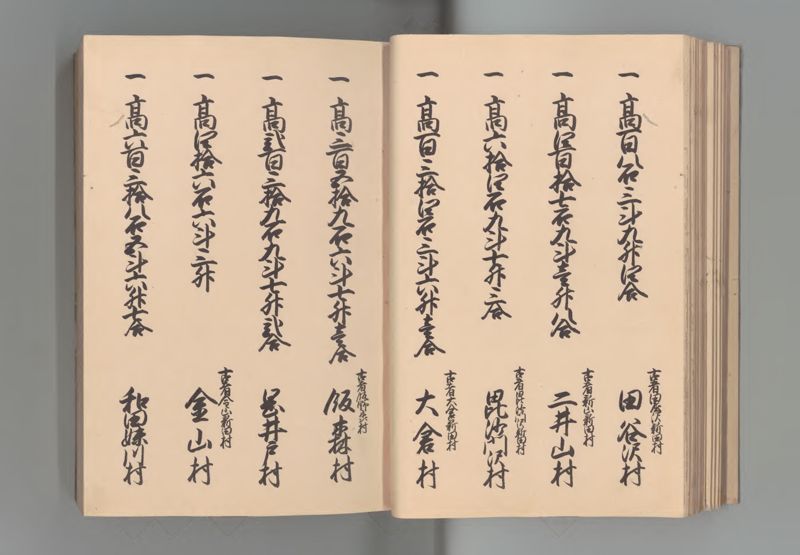 一 髙百八石三斗九升四合
古者田屋沢新田村
田谷沢村
一 髙四百拾七石九斗壱升八合
古者新山新田村
二井山村
一 髙六拾四石九斗七升三合
古者毘沙門沢新田村
毘沙門沢村
一 髙百三拾四石三斗六升壱合
古者大倉新田村
大倉村
一 髙三百五拾九石六斗七升壱合
古者飯野森村
飯森村
一 髙弐百三拾九石九斗七升弐合
井戸村
一 髙四拾六石六斗三升
古者今山新田村
金山村
一 髙六百三拾八石五斗六升七合
和田妹川村